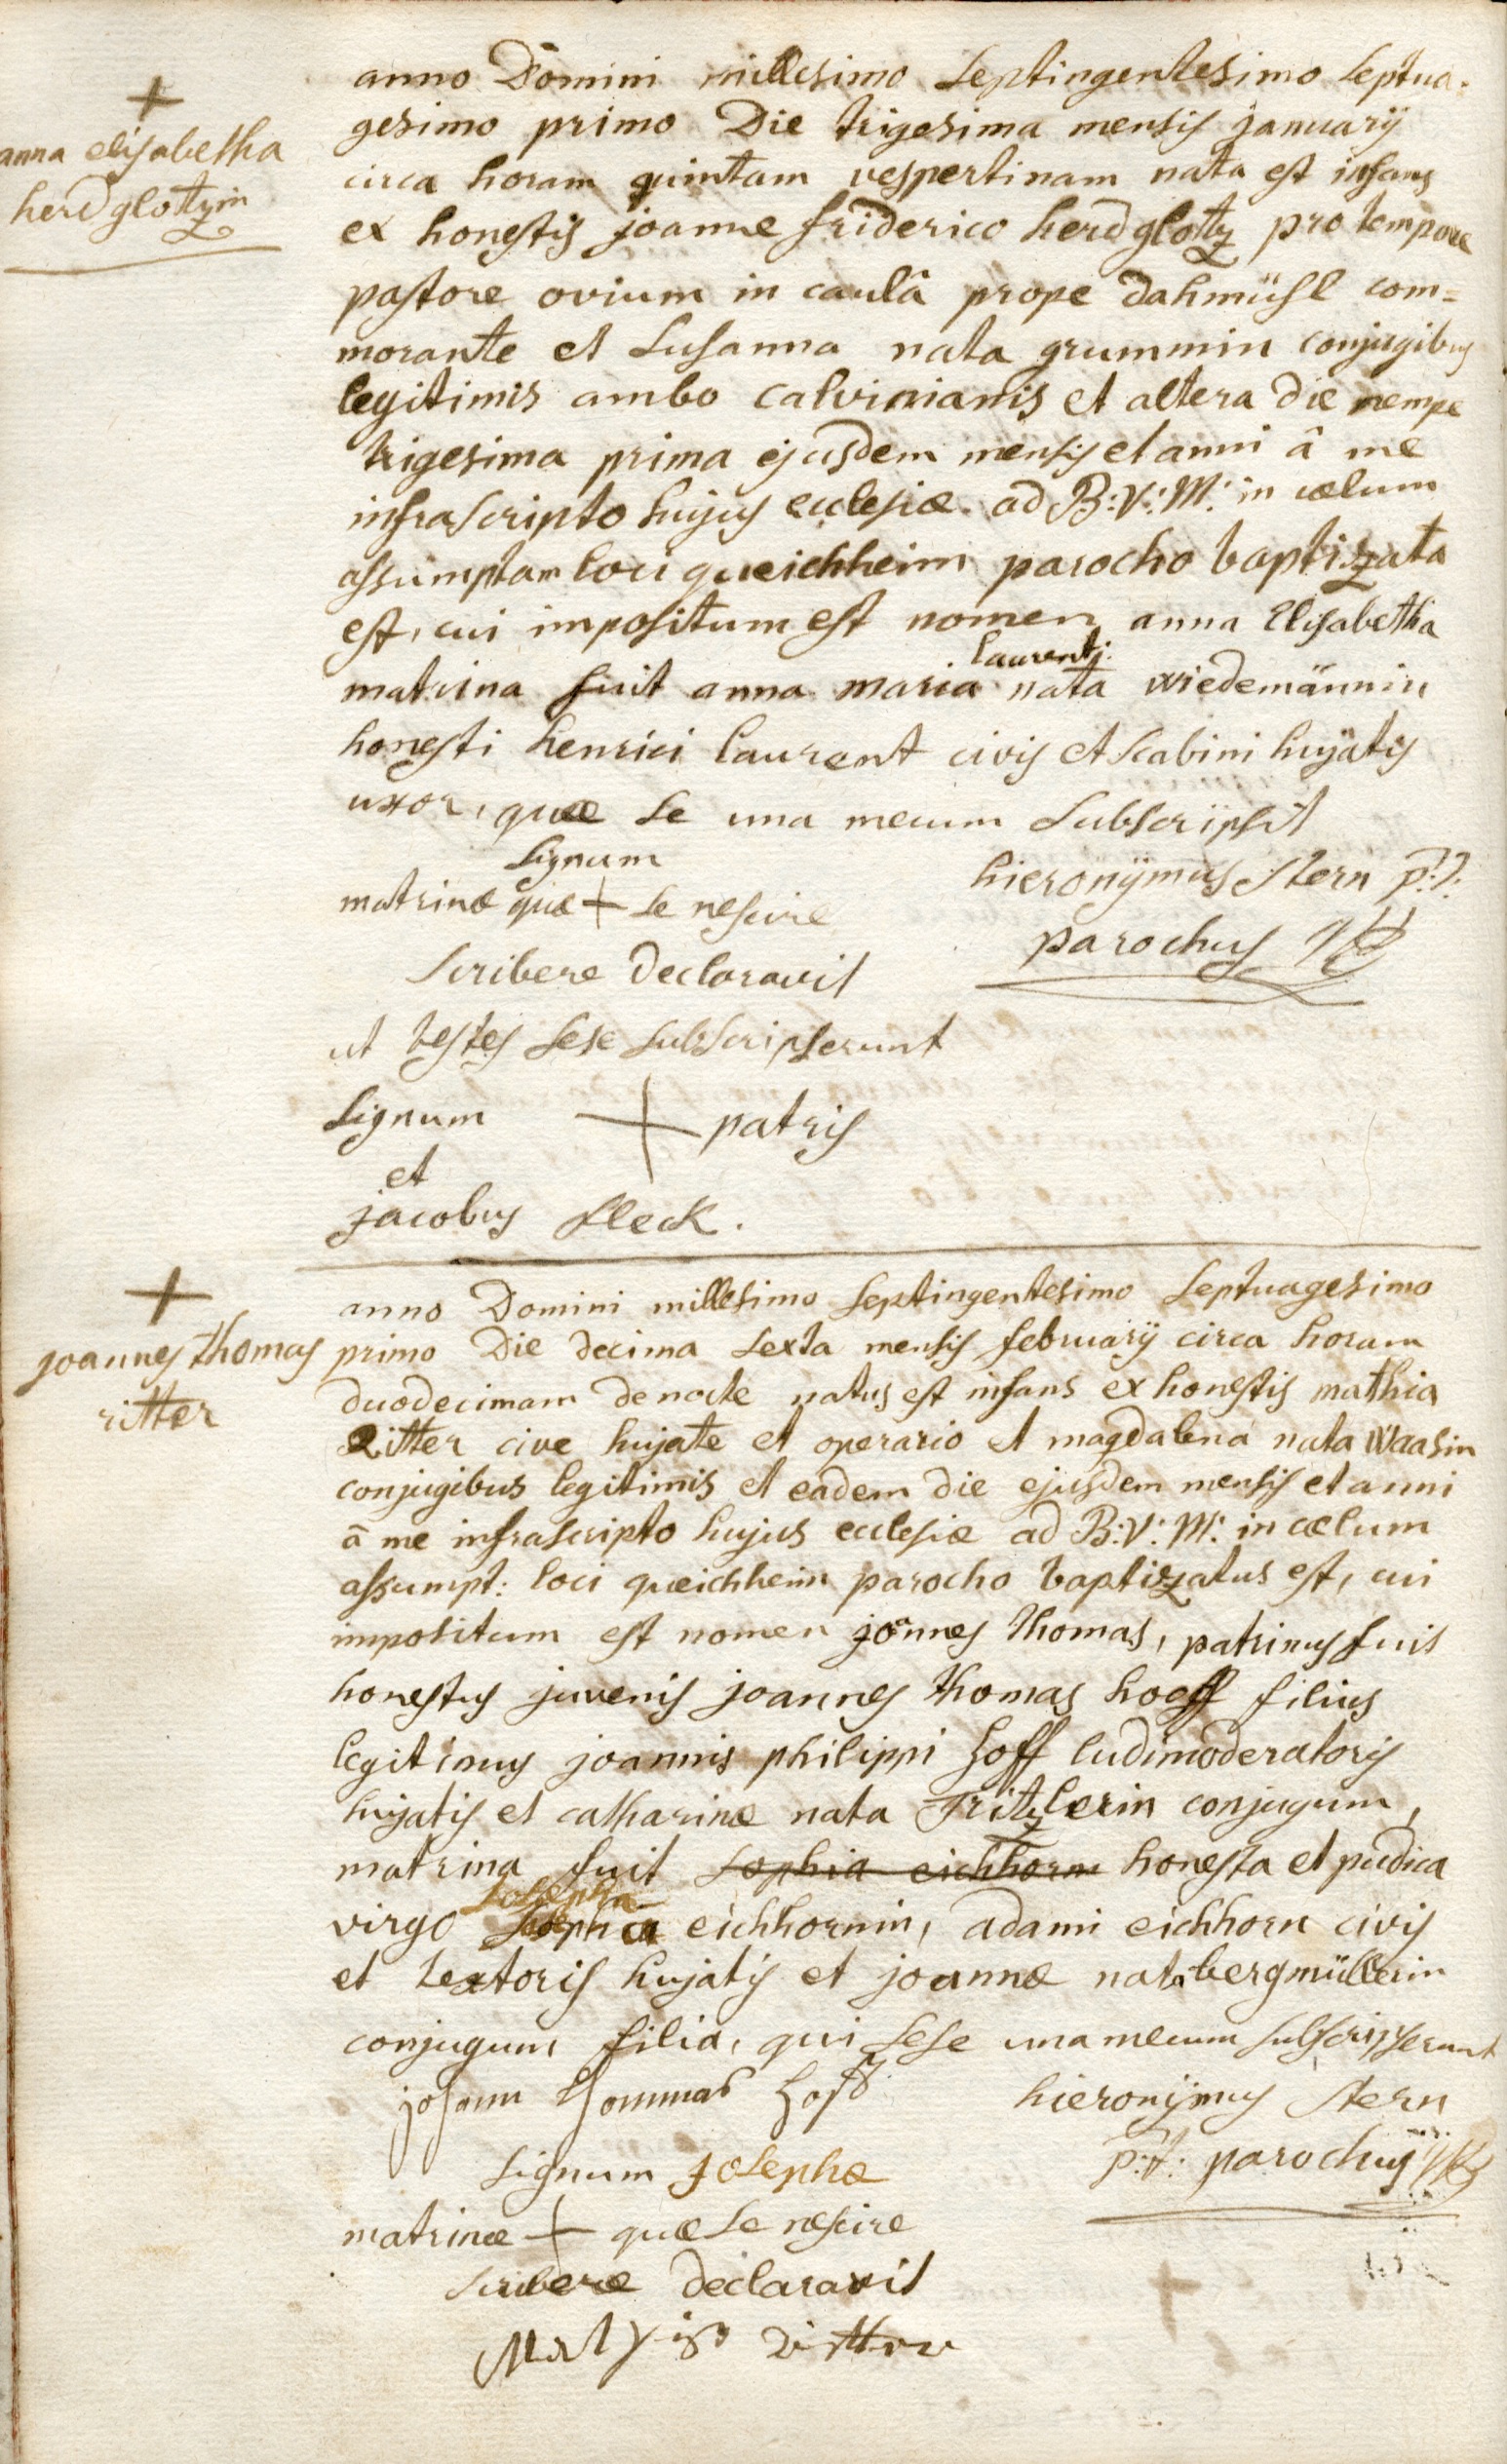 +
anna elisabetha
herdglotzin
anno Domini millesimo septingentesimo septua-
gesimo primo Die trigesima mensis januarÿ
circa horam quintam vespertinam nata est infans
ex honestis joanne friderico herdglotz pro tempore
pastore ovium in caulâ prope dahmühl com=
morante et susanna nata grummin conjugibus
legitimis ambo calvinianis et altera die nempe
trigesima prima ejusdem mensis et anni â me
infrascripto hujus ecclesiæ ad B:V:M: in cælum
assumptam loci queichheim parocho baptizata
est, cui impositum est nomen anna Elisabetha
laurentj:
matrina fuit anna maria nata wiedemännin
honesti henrici laurent civis et scabini hujatis
uxor, quæ se una mecum subscripsit
signum
matrinæ quæ + se nescire
scribere declaravit
hieronÿmus stern p:t:
parochus
ut testes sese subscripserunt
signum + patris
et
jacobus fleck.
+
joannes thomas
ritter
anno Domini millesimo septingentesimo septuagesimo
primo Die decima sexta mensis februarÿ circa horam
duodecimam de nocte natus est infans ex honestis mathia
Ritter cive hujate et operario et magdalena nata waasin
conjugibus legitimis et eadem die ejusdem mensis et anni
â me infrascripto hujus ecclesiæ ad B:V:M: in cælum
assumpt: loci queichheim parocho baptizatus est, cui
impositum est nomen joannes thomas, patrinus fuit
honestus juvenis joannes thomas hoff filius
legitimus joannis philippi hoff ludimoderatoris
hujatis et catharinæ nata Fritzlerin conjugum,
matrina fuit sophia eichhorn honesta et pudica
josepha
virgo sophia eichhornin, adami eichhorn civis
et textoris hujatis et joannæ nata bergmüllerin
conjugum filia, qui sese una mecum subscripserunt
johann thommas hoff
hieronÿmus stern
p:t: parochus
signum josephæ
matrinæ + quæ se nescire
scribere declaravit
Ritter